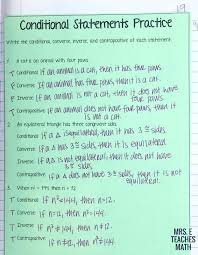 19
Conditional Statements Practice
Write the conditional, converse, inverse, and contrapositive of each statement.
1. A cat is an animal with four paws.
T Conditional: If an animal is a cat, then it has four paws.
F Converse: If an animal has four paws, then it is a cat.
F Inverse: If an animal is not a cat, then it does not have four paws.
T Contrapositive: If an animal does not have four paws, then it is not a cat.
2. An equilateral triangle has three congruent sides.
T Conditional: If a Δ is equilateral, then it has 3 ≅ sides.
T Converse: If a Δ has 3 ≅ sides, then it is equilateral.
T Inverse: If a Δ is not equilateral, then it does not have 3 ≅ sides.
T Contrapositive: If a Δ does not have 3 ≅ sides, then it is not equilateral.
3. When n² = 144, then n = 12.
F Conditional: If n²=144, then n=12.
T Converse: If n=12, then n²=144.
T Inverse: If n²≠144, then n≠12.
F Contrapositive: If n≠12, then n²≠144.
MRS. E
TEACHES
MATH